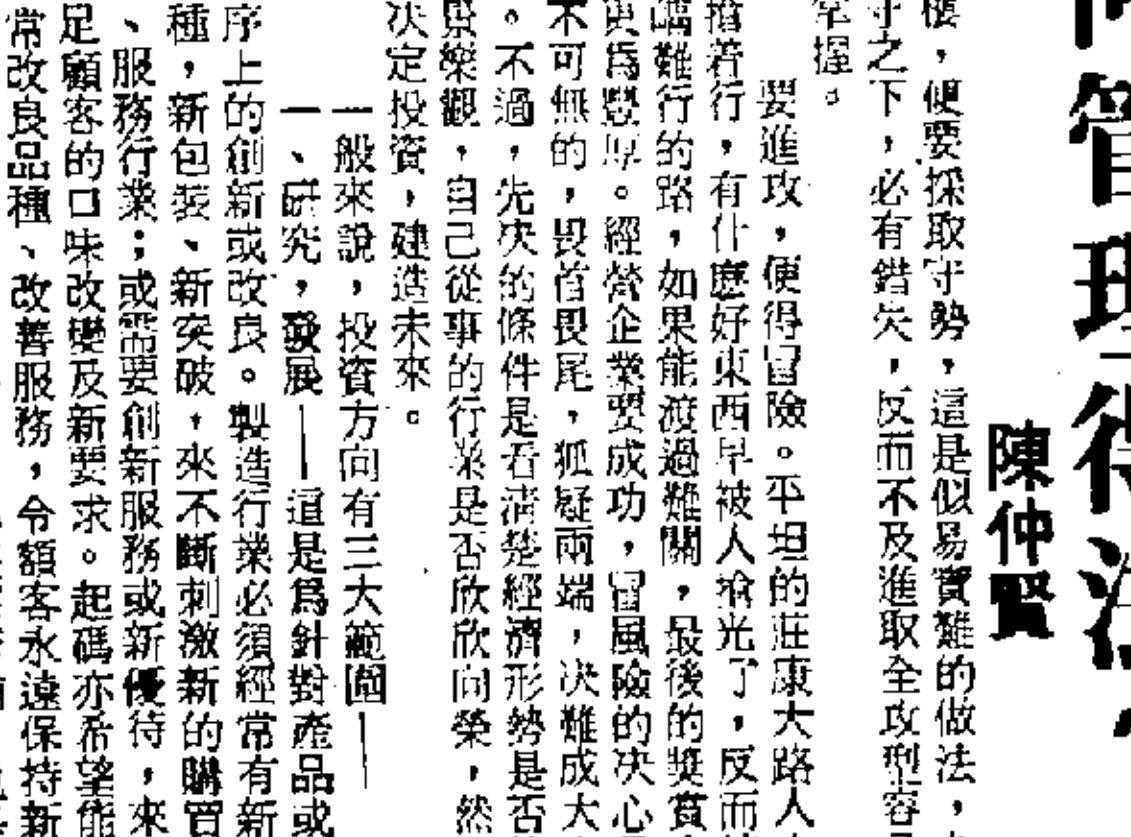 管理得法
陳仲賢
樓，便要採取守勢，這是似易實難的做法，
守之下，必有錯失，反而不及進取全攻型容
掌握。
要進攻，便得冒險。平坦的莊康大路人
搶着行，有什麽好東西早被人搶光了，反而
難行的路，如果能渡過難關，最後的獎賞
更爲豐厚。經營企業要成功，冒風險的决心
不可無的，畏首畏尾，狐疑兩端，决難成大
。不過，先决的條件是看清楚經濟形勢是否
樂觀，自己從事的行業是否欣欣向榮，然
决定投資，建造未來。
一般來說，投資方向有三大範圍—
一、研究，發展—這是爲針對產品或
序上的創新或改良。製造行業必須經常有新
種，新包裝、新突破，來不斷刺激新的購買
、服務行業；或需要創新服務或新優待，來
足顧客的口味改變及新要求。起碼亦希望能
常改良品種、改善服務，令額客永遠保持新